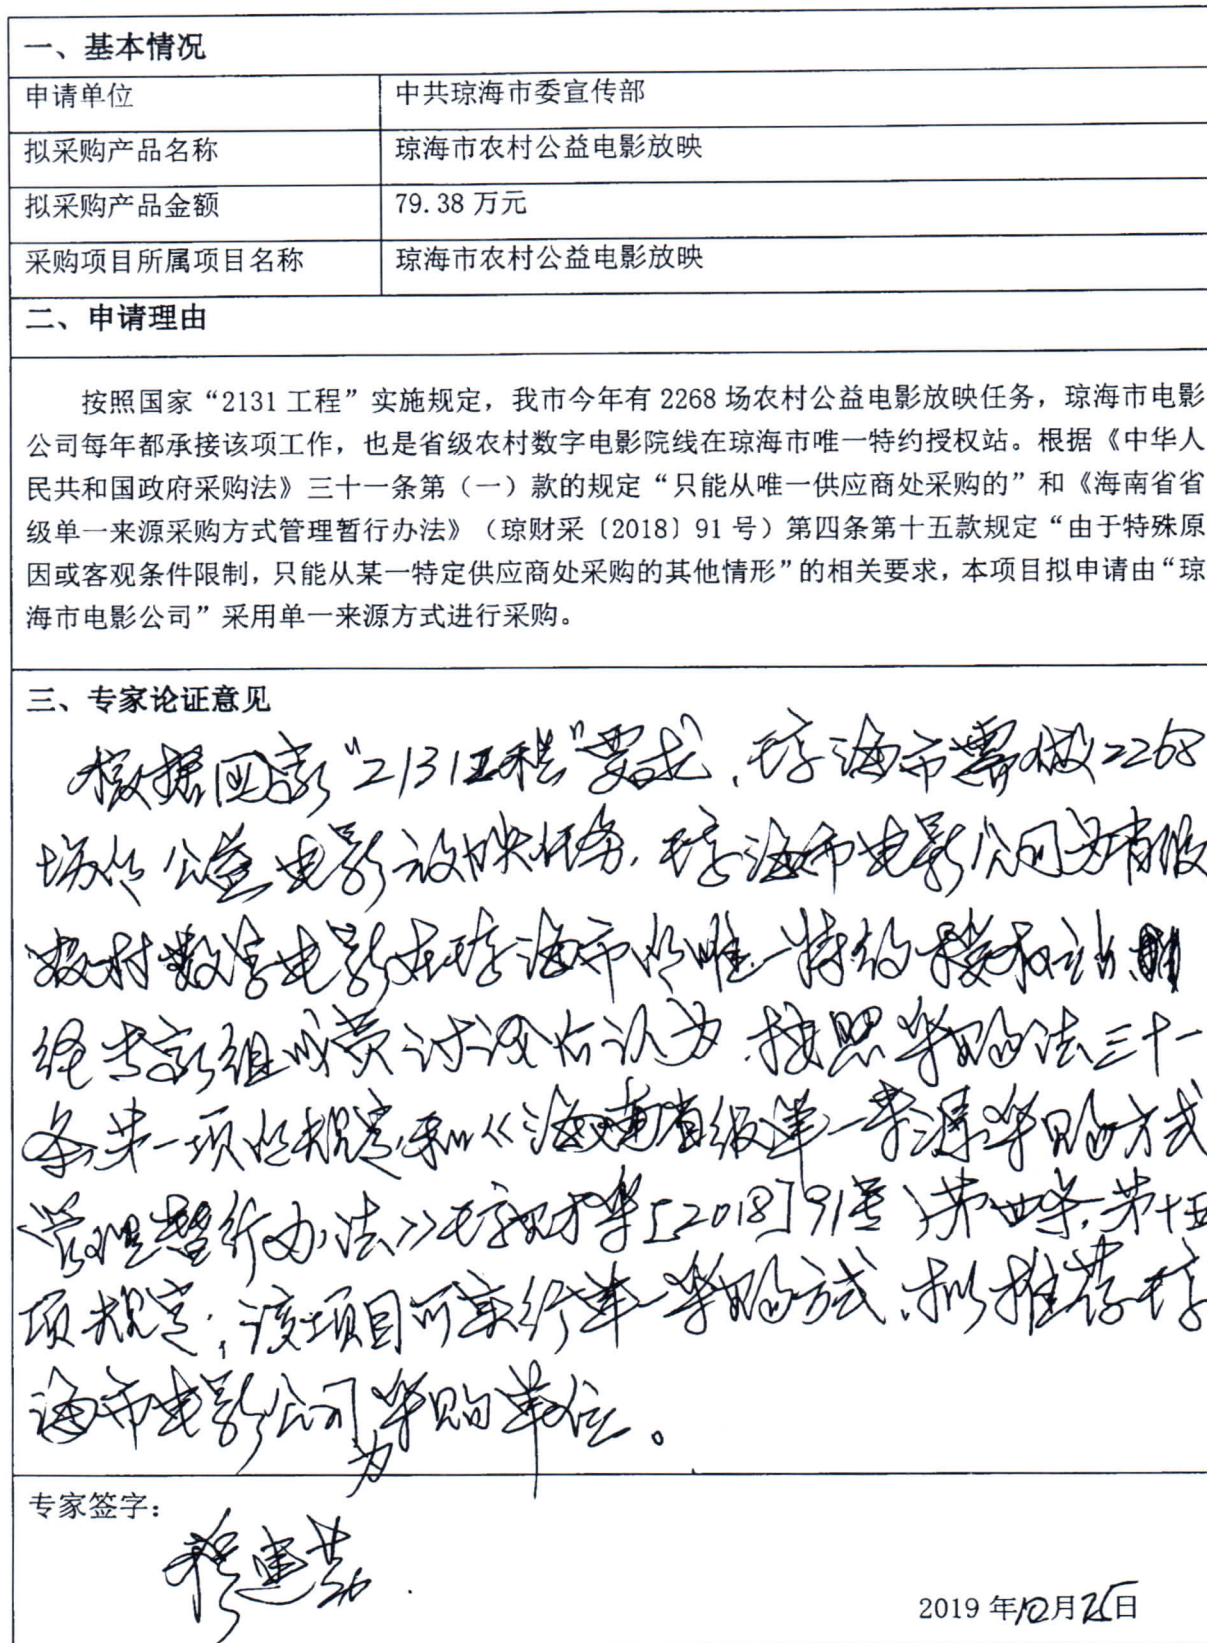 一、基本情况
申请单位 中共琼海市委宣传部
拟采购产品名称 琼海市农村公益电影放映
拟采购产品金额 79.38 万元
采购项目所属项目名称 琼海市农村公益电影放映
二、申请理由
按照国家“2131 工程”实施规定，我市今年有 2268 场农村公益电影放映任务，琼海市电影
公司每年都承接该项工作，也是省级农村数字电影院线在琼海市唯一特约授权站。根据《中华人
民共和国政府采购法》三十一条第（一）款的规定“只能从唯一供应商处采购的”和《海南省省
级单一来源采购方式管理暂行办法》（琼财采〔2018〕91 号）第四条第十五款规定“由于特殊原
因或客观条件限制，只能从某一特定供应商处采购的其他情形”的相关要求，本项目拟申请由“琼
海市电影公司”采用单一来源方式进行采购。
三、专家论证意见
根据国家“2131工程”要求，琼海市需做2268
场次公益电影放映任务，琼海市电影公司为省级
农村数字电影在琼海市的唯一特约授权站
经专家组成员讨论后认为，按照采购法三十一
条，第一项的规定，和《海南省级单一来源采购方式
管理暂行办法》琼财采[2018]91号，第四条，第十五
项规定，该项目可实行单一采购方式，拟推荐琼
海市电影公司为采购单位。
专家签字：
2019 年10月25日